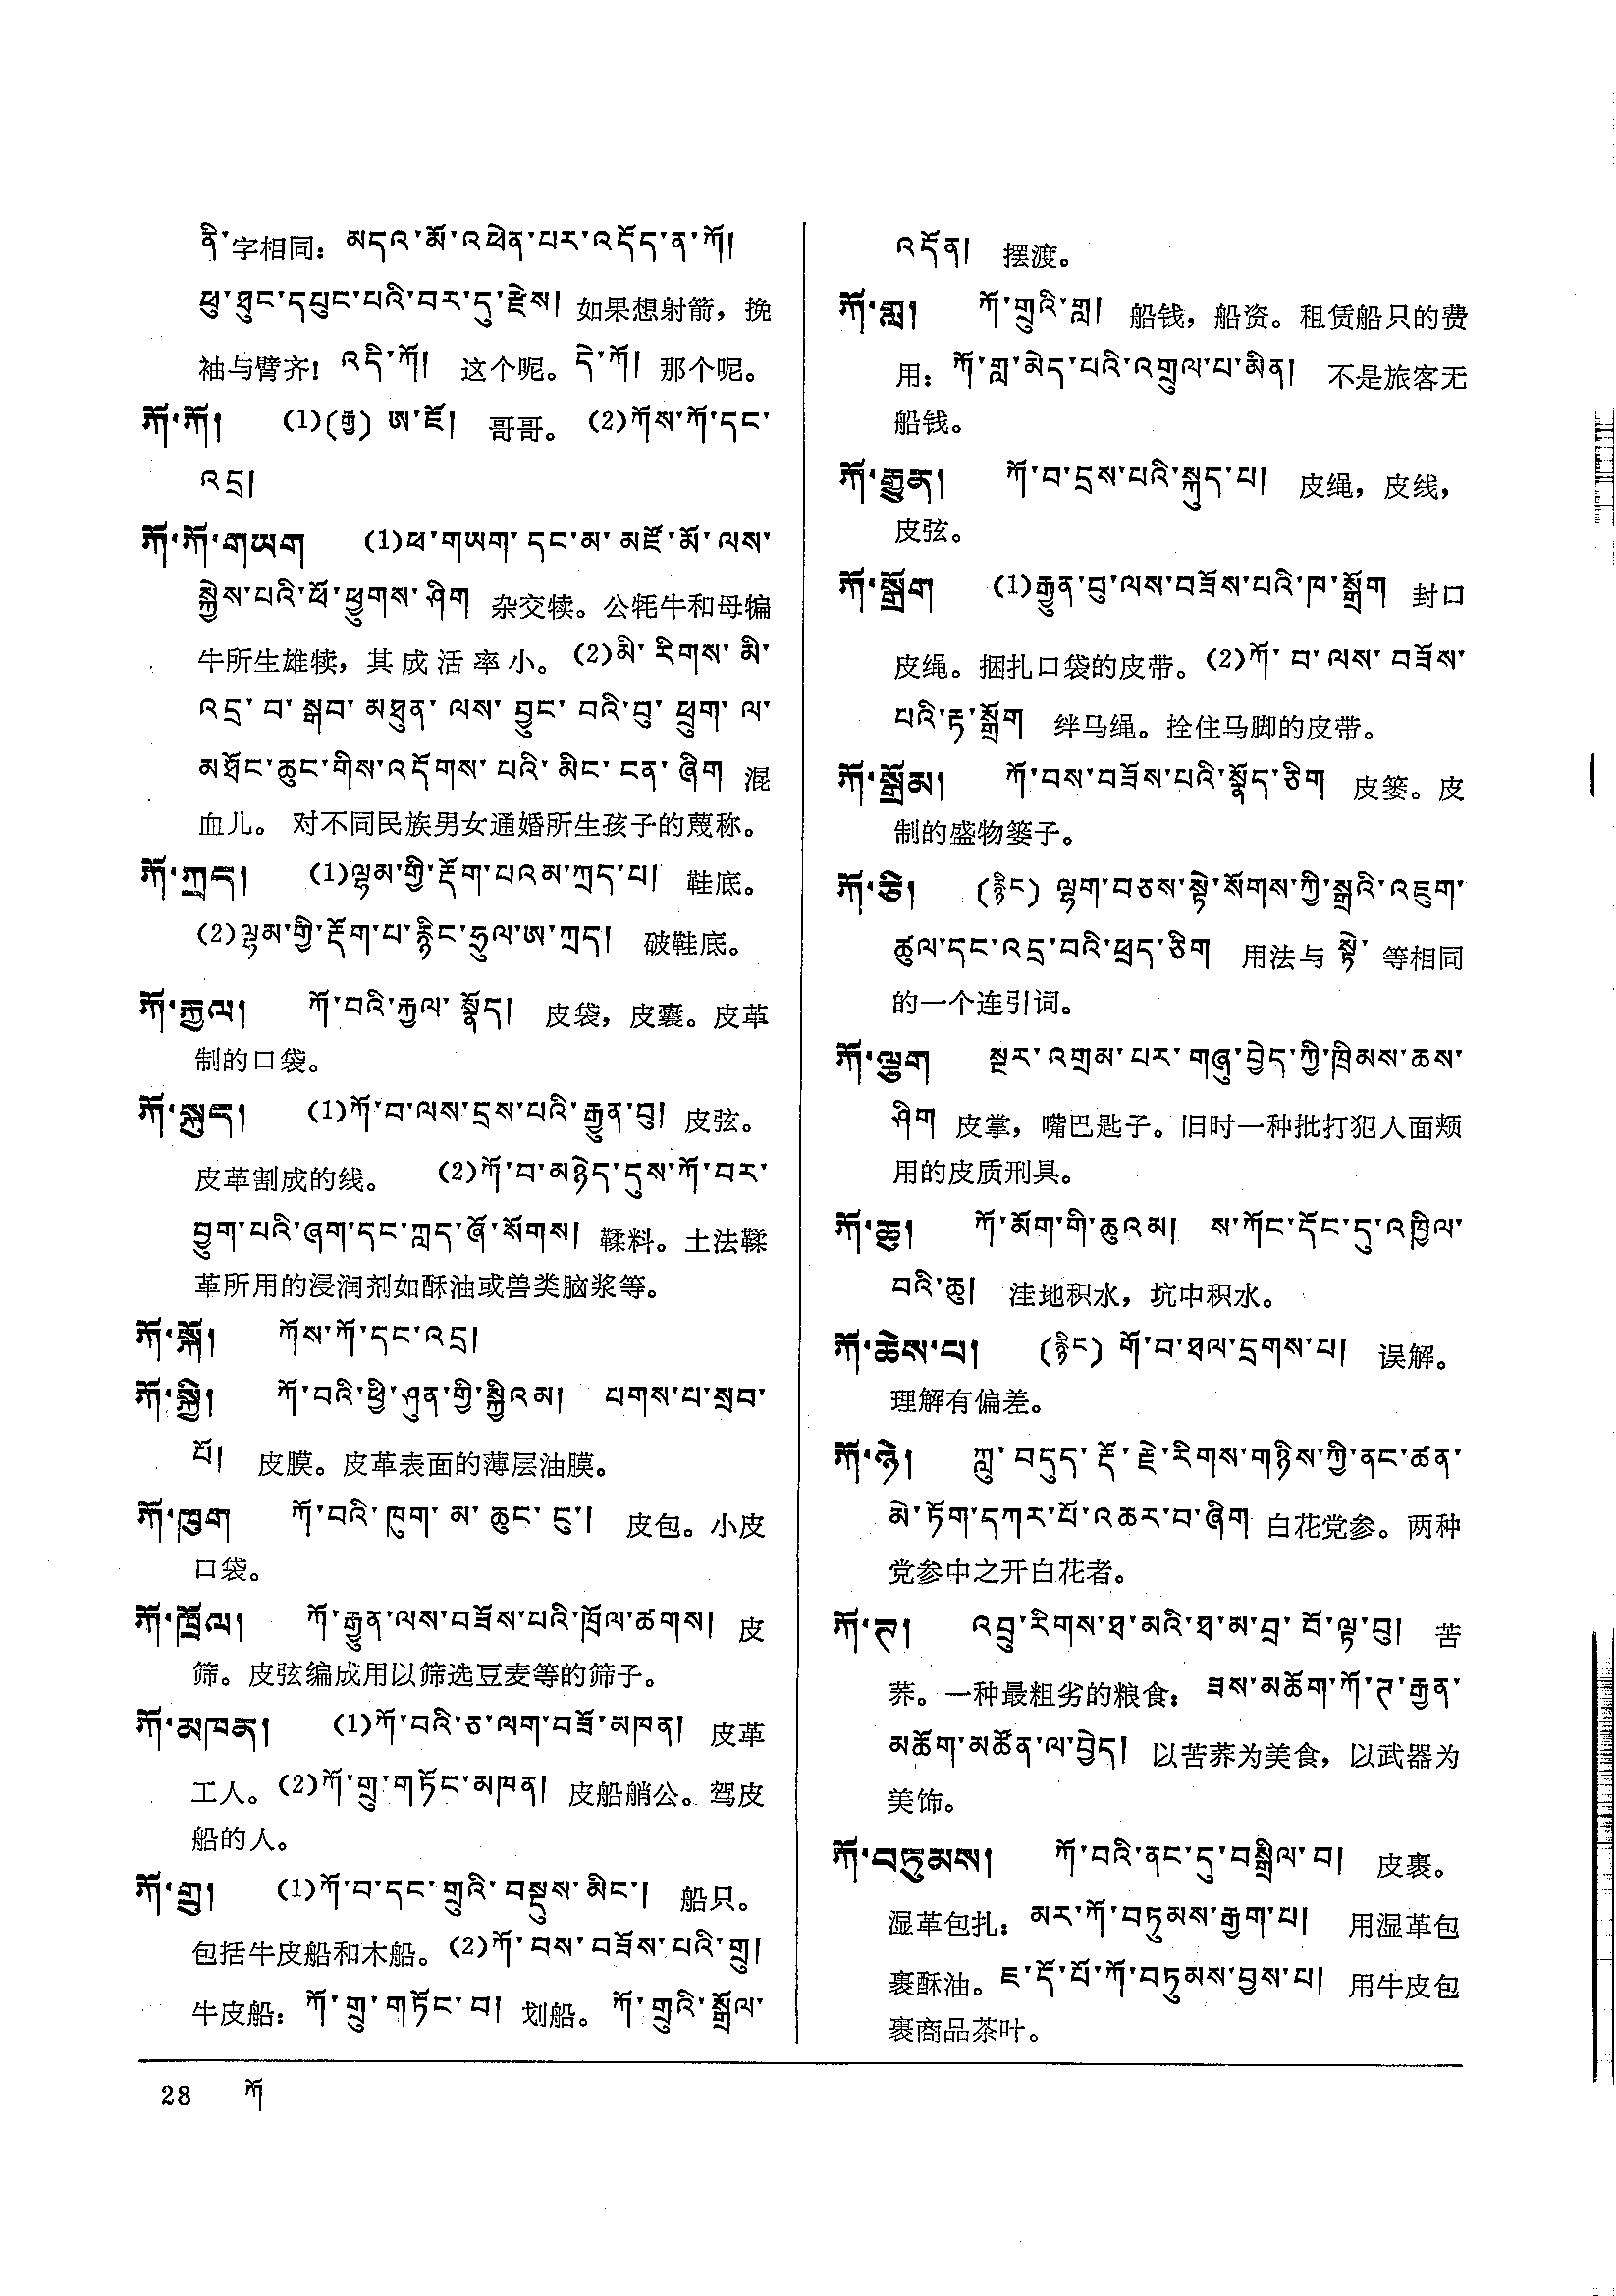 ནི་字相同: མདའ་མོ་འཕེན་པར་འདོད་ན་ཀོ།
ཕུ་ཐུང་དཔུང་པའི་བར་དུ་རྫེས། 如果想射箭，挽
袖与臂齐! འདི་ཀོ། 这个呢。དེ་ཀོ། 那个呢。
ཀོ་ཀོ། (1)(རྒྱ) ཨ་ཇོ། 哥哥。 (2)ཀོས་ཀོ་དང་
འདྲ།
ཀོ་ཀོ་གཡག (1)ཕ་གཡག་དང་མ་མཛོ་མོ་ལས་
སྐྱེས་པའི་ཕོ་ཕྱུགས་ཤིག 杂交犊。公牦牛和母犏
牛所生雄犊，其成活率小。(2)མི་རིགས་མི་
འདྲ་བ་སྒབ་མཐུན་ལས་བྱུང་བའི་བུ་ཕྲུག་ལ་
མཐོང་ཆུང་གིས་འདོགས་པའི་མིང་ངན་ཞིག 混
血儿。 对不同民族男女通婚所生孩子的蔑称。
ཀོ་ཀྲད། (1)ལྷམ་གྱི་རྡོག་པའམ་ཀྲད་པ། 鞋底。
(2)ལྷམ་གྱི་རྡོག་པ་རྙིང་ཧྲུལ་ཨ་ཀྲད། 破鞋底。
ཀོ་རྐྱལ། ཀོ་བའི་རྐྱལ་སྣོད། 皮袋，皮囊。皮革
制的口袋。
ཀོ་སྐུད། (1)ཀོ་བ་ལས་དྲས་པའི་རྒྱུན་བུ། 皮弦。
皮革割成的线。 (2)ཀོ་བ་མཉེད་དུས་ཀོ་བར་
བྱུག་པའི་ཞག་དང་ཀླད་ཞོ་སོགས། 鞣料。土法鞣
革所用的浸润剂如酥油或兽类脑浆等。
ཀོ་སྐོ། ཀོས་ཀོ་དང་འདྲ།
ཀོ་སྐྱི། ཀོ་བའི་ཕྱི་ཤུན་གྱི་སྐྱིའམ། པགས་པ་སྲབ་
པོ། 皮膜。皮革表面的薄层油膜。
ཀོ་ཁུག ཀོ་བའི་ཁུག་མ་ཆུང་ངུ་། 皮包。小皮
口袋。
ཀོ་ཁྲོལ། ཀོ་རྒྱུན་ལས་བཟོས་པའི་ཁྲོལ་ཚགས། 皮
筛。皮弦编成用以筛选豆麦等的筛子。
ཀོ་མཁན། (1)ཀོ་བའི་ཅ་ལག་བཟོ་མཁན། 皮革
工人。(2)ཀོ་གྲུ་གཏོང་མཁན། 皮船艄公。驾皮
船的人。
ཀོ་གྲུ། (1)ཀོ་བ་དང་གྲུའི་བསྡུས་མིང་། 船只。
包括牛皮船和木船。(2)ཀོ་བས་བཟོས་པའི་གྲུ།
牛皮船: ཀོ་གྲུ་གཏོང་བ། 划船。 ཀོ་གྲུའི་སྒྲོལ་
འདོན། 摆渡。
ཀོ་གླ། ཀོ་གྲུའི་གླ། 船钱，船资。租赁船只的费
用: ཀོ་གླ་མེད་པའི་འགྲུལ་པ་མིན། 不是旅客无
船钱。
ཀོ་རྒྱུན། ཀོ་བ་དྲས་པའི་སྐུད་པ། 皮绳，皮线，
皮弦。
ཀོ་སྒྲོག (1)རྒྱུན་བུ་ལས་བཟོས་པའི་ཁ་སྒྲོག 封口
皮绳。捆扎口袋的皮带。(2)ཀོ་བ་ལས་བཟོས་
པའི་རྟ་སྒྲོག 绊马绳。拴住马脚的皮带。
ཀོ་སྒྲོམ། ཀོ་བས་བཟོས་པའི་སྣོད་ཅིག 皮篓。皮
制的盛物篓子。
ཀོ་ཅི། (རྙིང) ལྷག་བཅས་སྟེ་སོགས་ཀྱི་སྒྲའི་འཇུག་
ཚུལ་དང་འདྲ་བའི་ཕྲད་ཅིག 用法与 སྟེ་ 等相同
的一个连引词。
ཀོ་ལྕུག སྔར་འགྲམ་པར་གཞུ་བྱེད་ཀྱི་ཁྲིམས་ཆས་
ཤིག 皮掌，嘴巴匙子。旧时一种批打犯人面颊
用的皮质刑具。
ཀོ་ཆུ། ཀོ་མོག་གི་ཆུའམ། ས་ཀོང་དོང་དུ་འཁྱིལ་
བའི་ཆུ། 洼地积水，坑中积水。
ཀོ་ཆེས་པ། (རྙིང) གོ་བ་ཐལ་དྲགས་པ། 误解。
理解有偏差。
ཀོ་ཉེ། ཀླུ་བདུད་རྡོ་རྗེ་རིགས་གཉིས་ཀྱི་ནང་ཚན་
མེ་ཏོག་དཀར་པོ་འཆར་བ་ཞིག 白花党参。两种
党参中之开白花者。
ཀོ་ཏ། འབྲུ་རིགས་ཐ་མའི་ཐ་མ་བྲ་བོ་ལྟ་བུ། 苦
荞。一种最粗劣的粮食: ཟས་མཆོག་ཀོ་ཏ་རྒྱན་
མཆོག་མཚོན་ལ་བྱེད། 以苦荞为美食，以武器为
美饰。
ཀོ་བཏུམས། ཀོ་བའི་ནང་དུ་བསྒྲིལ་བ། 皮裹。
湿革包扎: མར་ཀོ་བཏུམས་རྒྱག་པ། 用湿革包
裹酥油。ཇ་དོ་པོ་ཀོ་བཏུམས་བྱས་པ། 用牛皮包
裹商品茶叶。
28 ཀོ